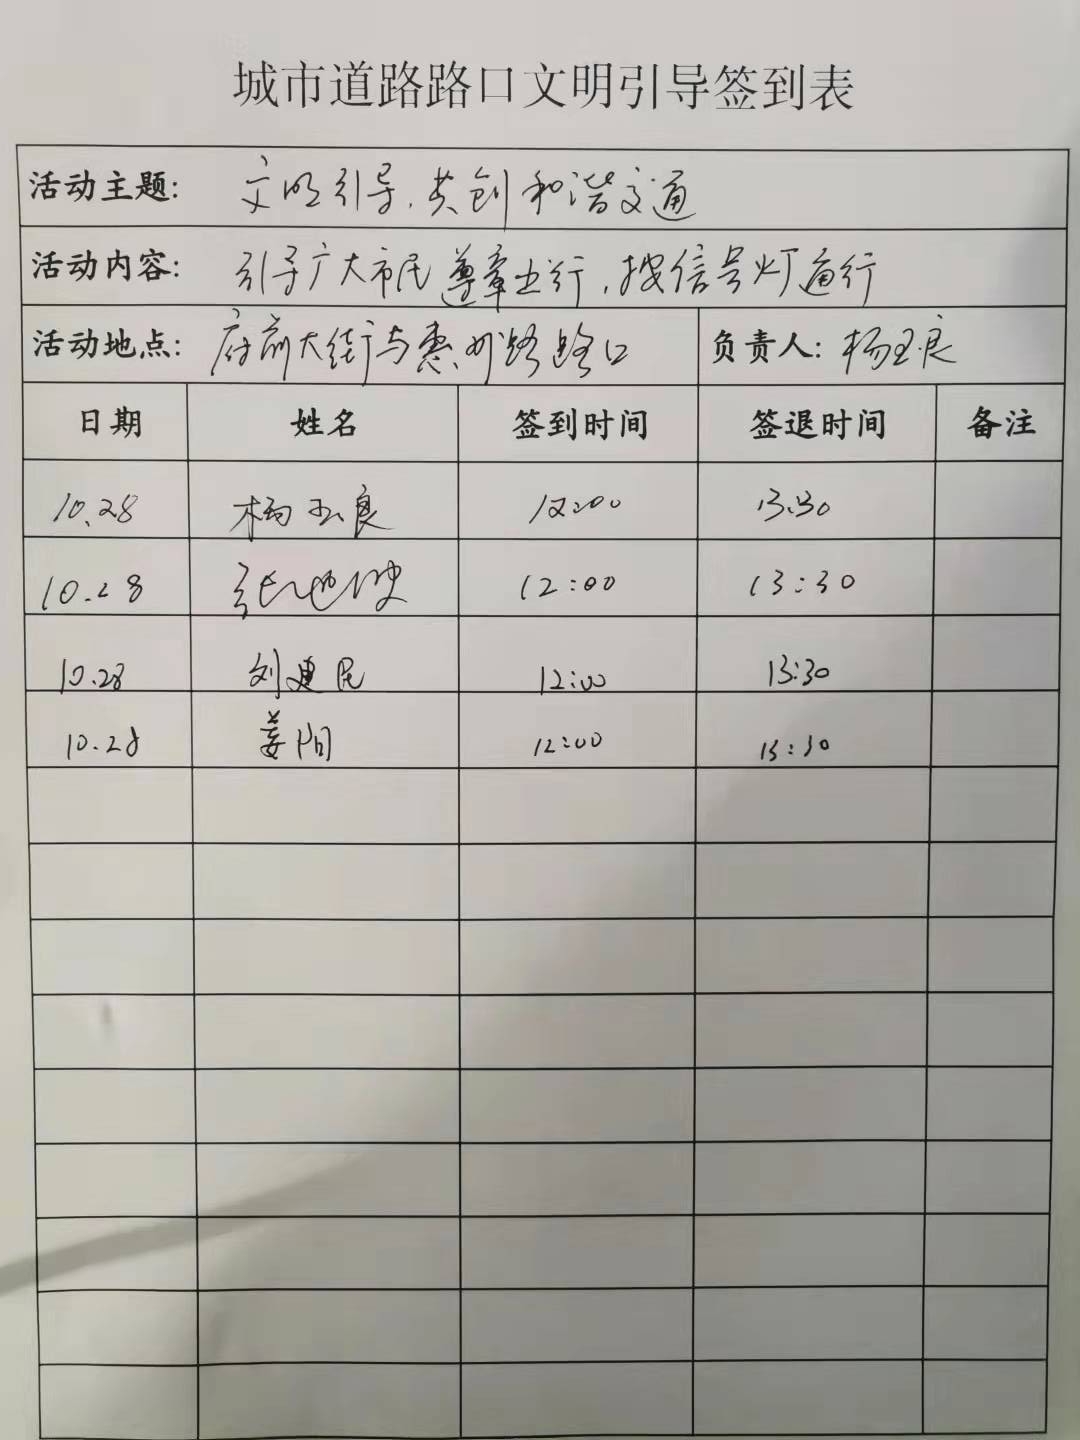 城市道路路口文明引导签到表
活动主题: 文明引导,共创和谐交通
活动内容: 引导广大市民遵章出行,按信号灯通行
活动地点: 府前大街与惠州路路口 负责人: 杨玉良
日期 姓名 签到时间 签退时间 备注
10.28 杨玉良 12:00 13:30
10.28 张 12:00 13:30
10.28 刘建民 12:00 13:30
10.28 姜阳 12:00 13:30